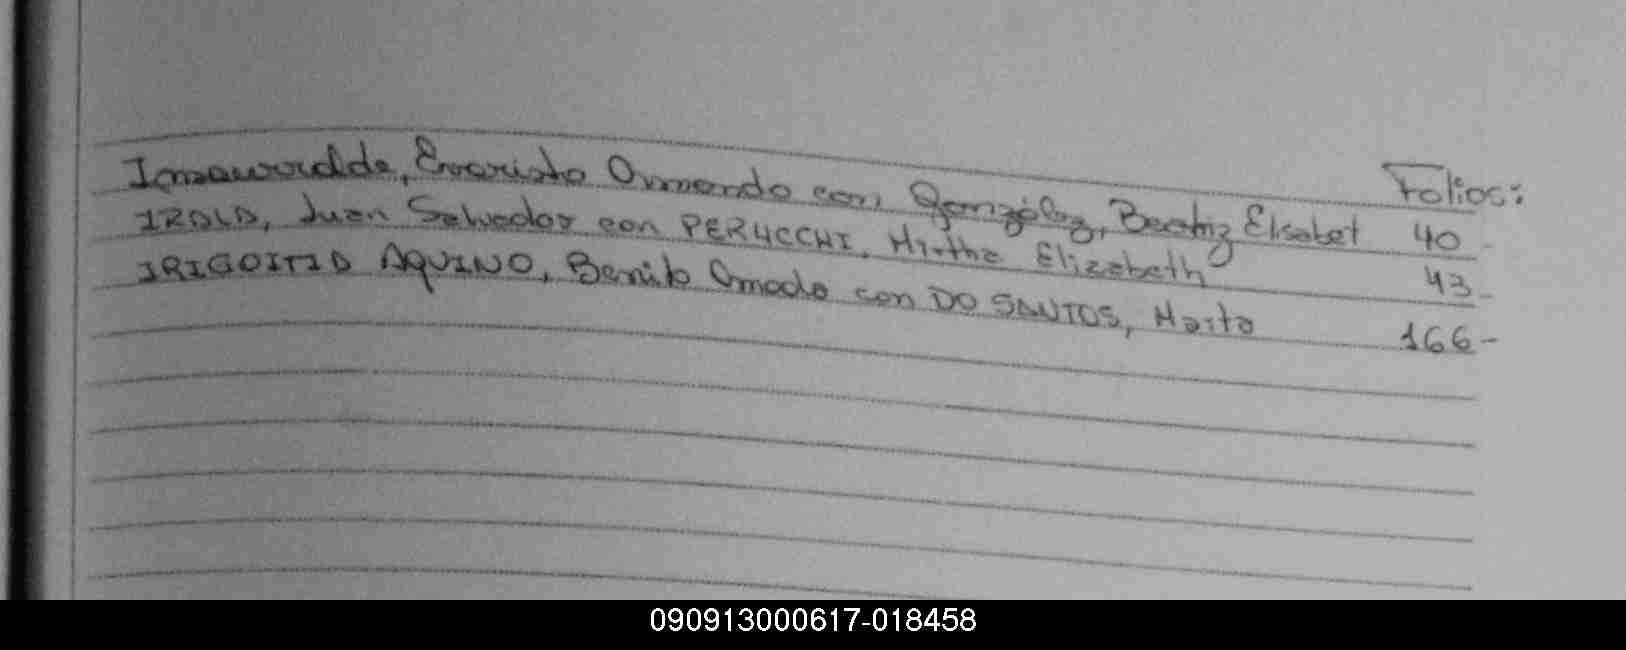 Folios:
Insaurralde, Evaristo Armando con González, Beatriz Elisabet 40-
IRALA, Juan Salvador con PERUCCHI, Mirtha Elizabeth 43-
IRIGOITIA AQUINO, Benito Amado con DO SANTOS, Marta 166-
090913000617-018458